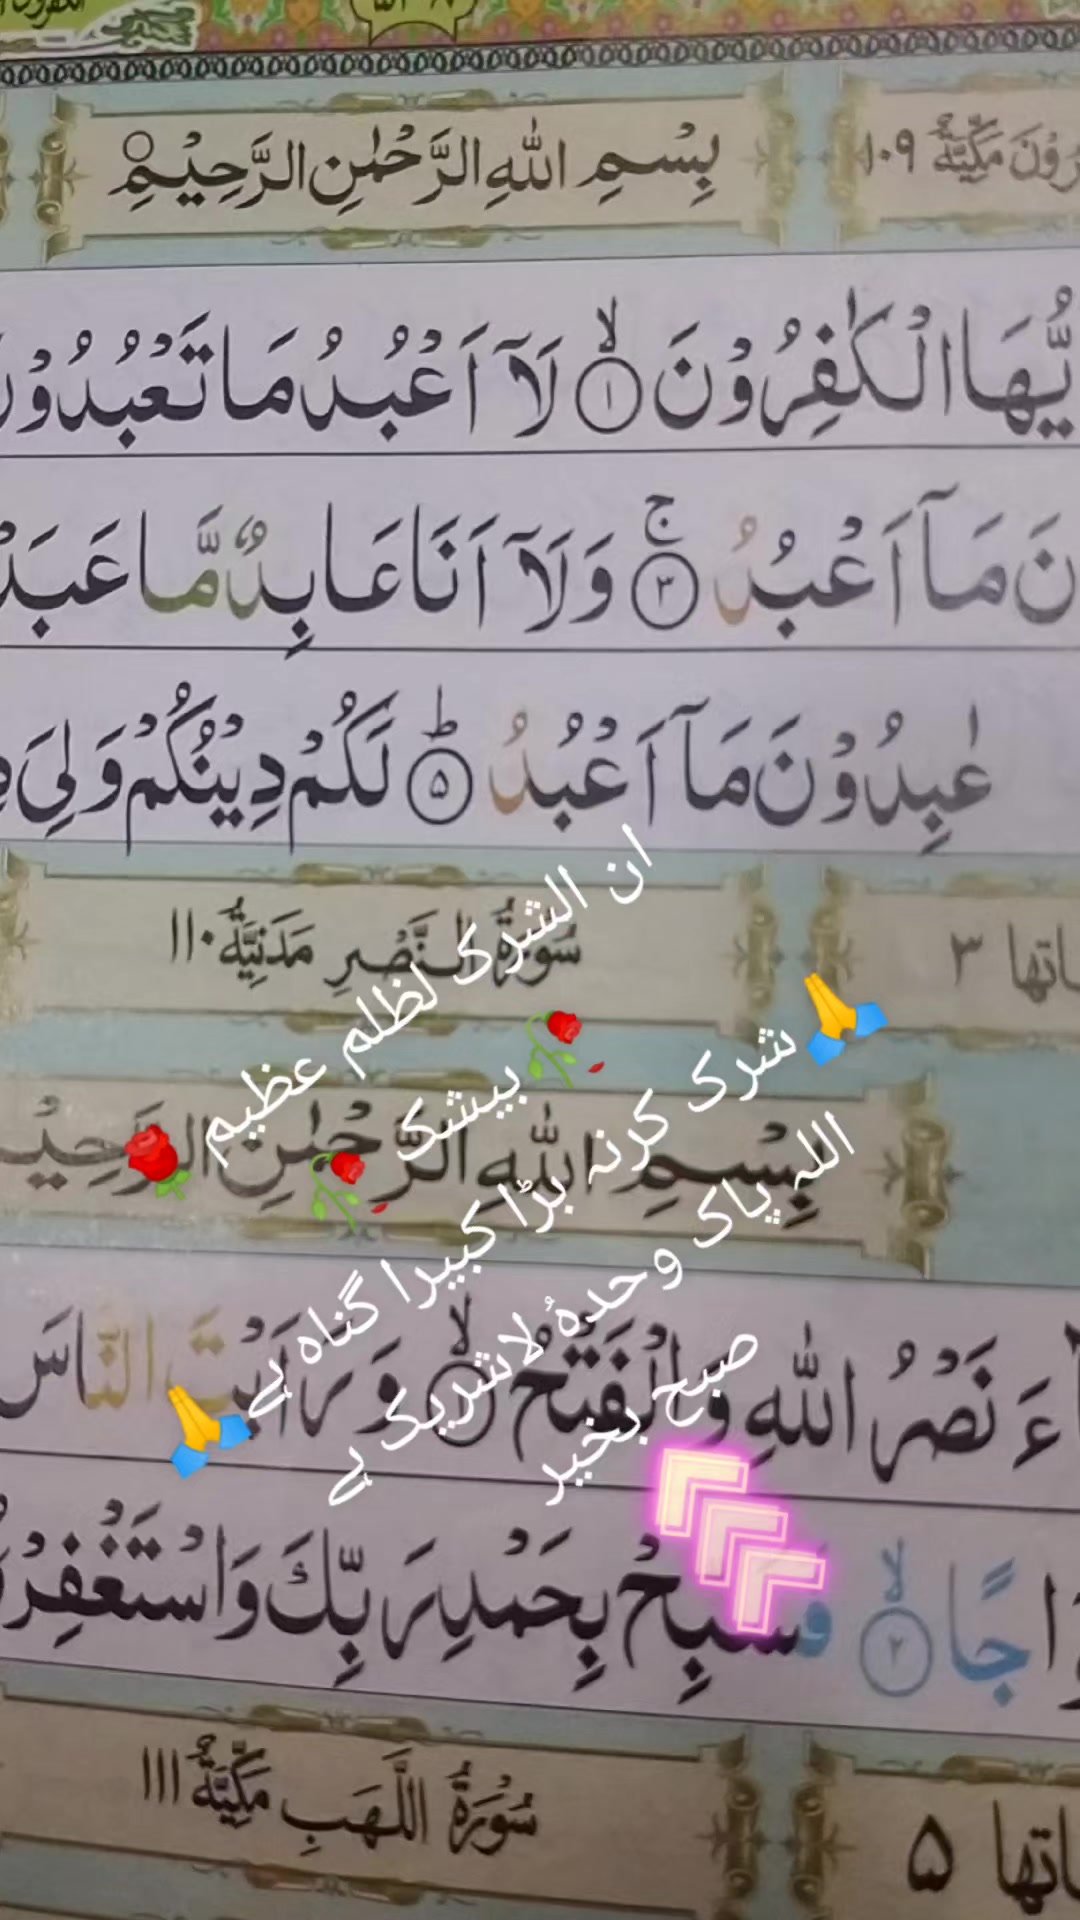 بِسْمِ اللهِ الرَّحْمٰنِ الرَّحِيْمِ
مَكِّيَّةٌ ١٠٩
يُّهَا الْكٰفِرُوْنَ ۙ﴿١﴾ لَاۤ اَعْبُدُ مَا تَعْبُدُوْنَ
نَ مَاۤ اَعْبُدُ ۚ﴿٣﴾ وَلَاۤ اَنَا عَابِدٌ مَّا عَبَدْ
عٰبِدُوْنَ مَاۤ اَعْبُدُ ؕ﴿۵﴾ لَكُمْ دِيْنُكُمْ وَلِيَ دِ
سُوْرَةُ النَّصْرِ مَدَنِيَّةٌ ١١٠
ٰاتها ٣
بِسْمِ اللهِ الرَّحْمٰنِ الرَّحِيْ
ءَ نَصْرُ اللهِ وَالْفَتْحُ ۙ﴿١﴾ وَرَاَيْتَ النَّاسَ
وَاجًا ۙ﴿٢﴾ فَسَبِّحْ بِحَمْدِ رَبِّكَ وَاسْتَغْفِرْ
سُوْرَةُ اللَّهَبِ مَكِّيَّةٌ ١١١
ٰاتها ۵
ان الشرک لظلم عظیم
🌹 🥀 بیشک 🥀
شرک کرنہ بڑا کبیرا گناہ ہے 🙏
🙏 اللہ پاک وحدہُ لاشریک ہے
صبح بخیر